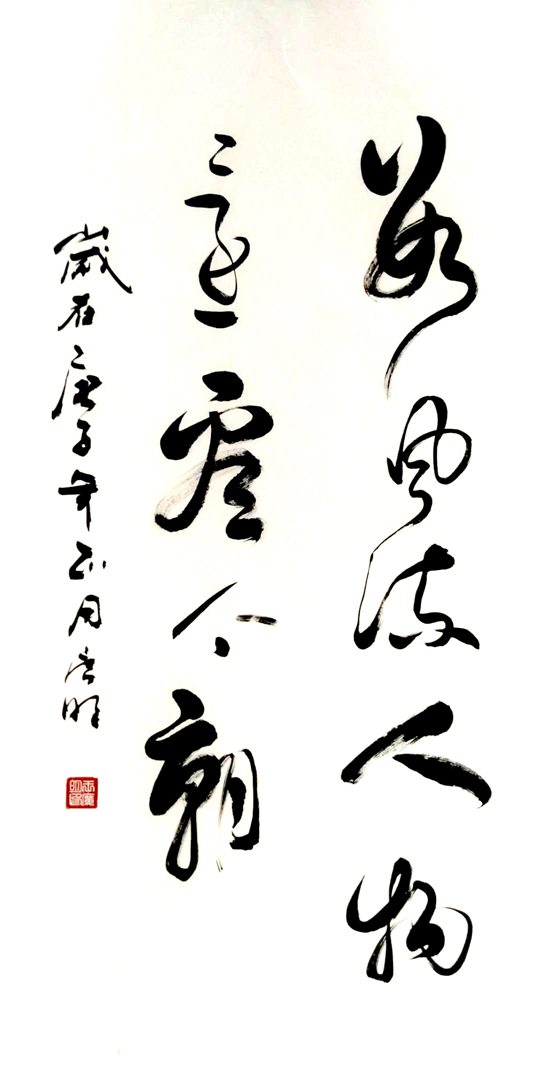 數風流人物
還看今朝
歲在庚子年正月